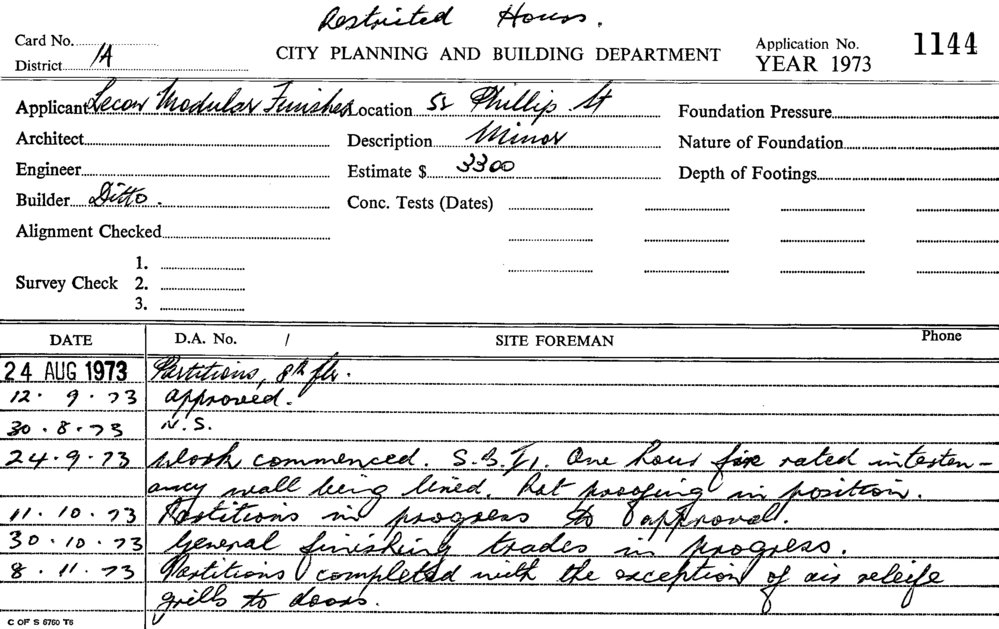 Restricted Hours.
Card No.
CITY PLANNING AND BUILDING DEPARTMENT
Application No. 1144
District 1A
YEAR 1973
Applicant Lecon Modular Finishes Location 52 Phillip St Foundation Pressure
Architect Description Minor Nature of Foundation
Engineer Estimate $ 3300 Depth of Footings
Builder Ditto. Conc. Tests (Dates)
Alignment Checked
1.
Survey Check 2.
3.
DATE D.A. No. / SITE FOREMAN Phone
24 AUG 1973 Partitions, 8th flr.
12. 9. 73 approved.
30.8.73 N.S.
24.9.73 Work commenced. One hour fire rated interten-
ancy wall being lined. Rat proofing in position.
11.10.73 Partitions in progress to approval.
30.10.73 General finishing trades in progress.
8.11.73 Partitions completed with the exception of air releife
grills to doors.
C OF S 6760 T6